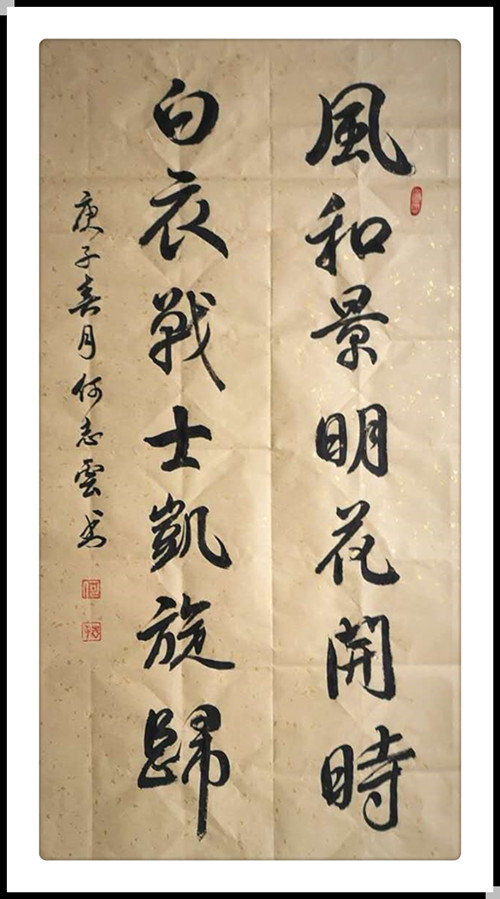 風和景明花開時
白衣戰士凱旋歸
庚子春月何志雲书